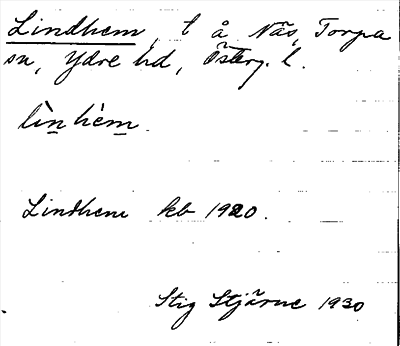 Lindhem, t å Näs, Torpa
sn, Ydre hd, Österg. l.
lìnhèm.
Lindhem kb 1920.
Stig Stjärne 1930